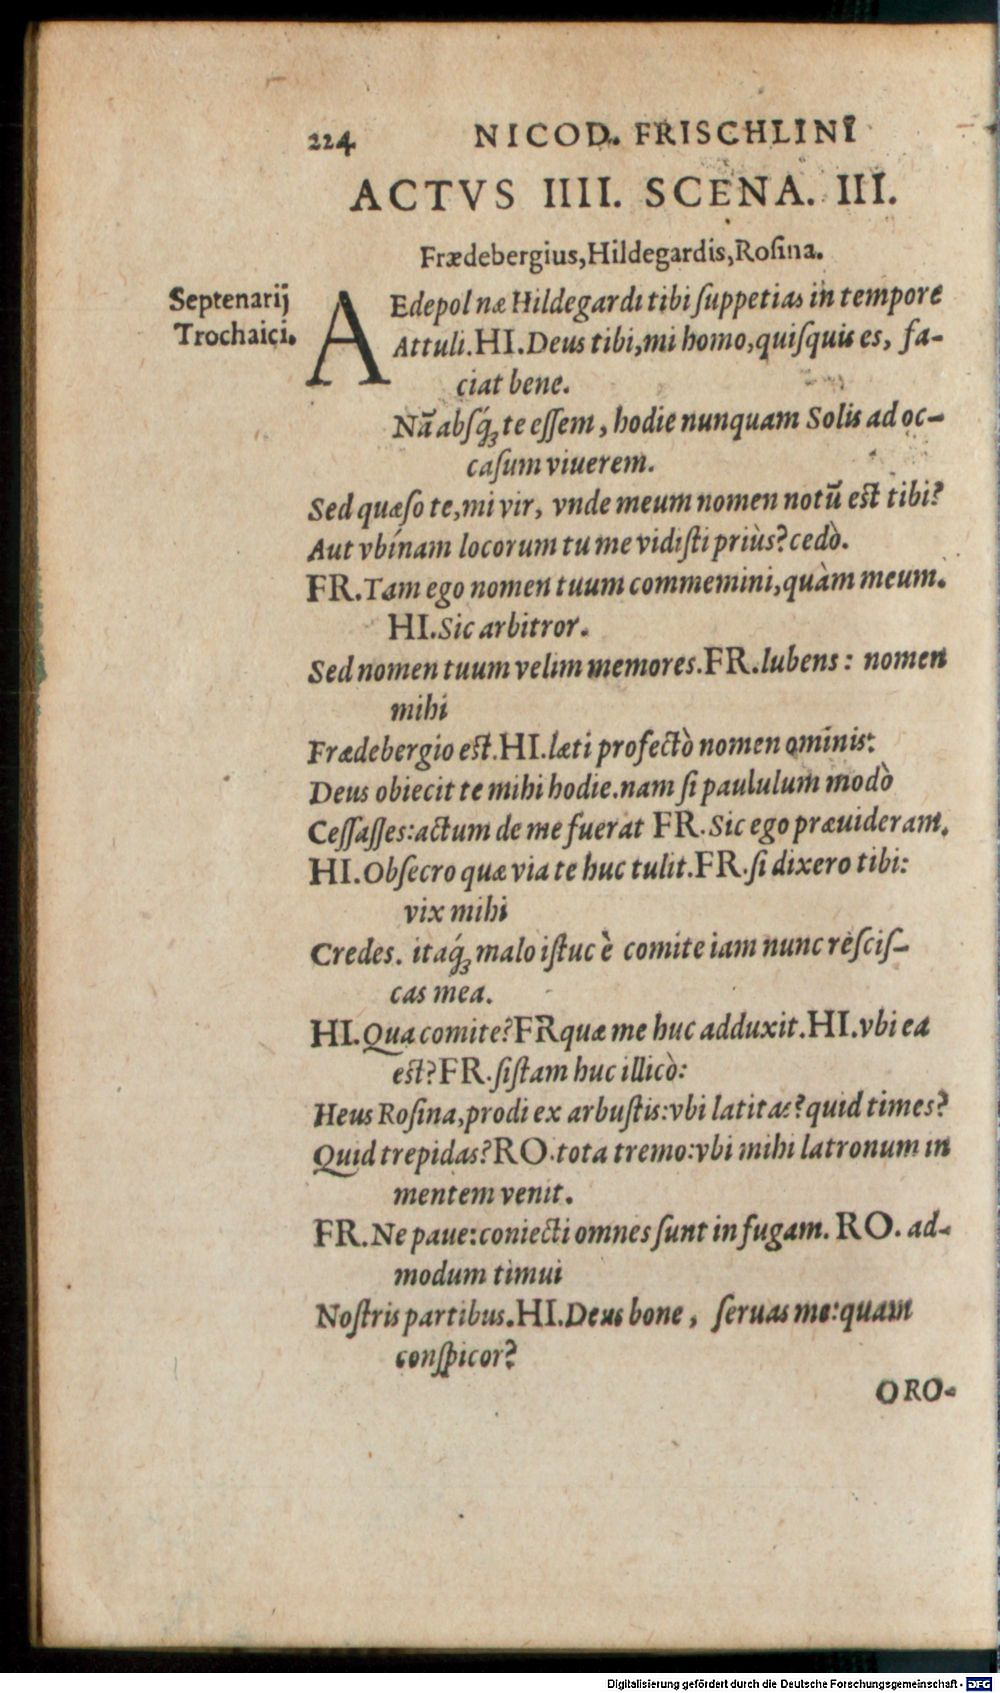 224 NICOD. FRISCHLINI
ACTVS IIII. SCENA. III.
Frædebergius, Hildegardis, Roſina.
Septenarij
Trochaici.
AEdepol næ Hildegardi tibi ſuppetias in tempore
Attuli. HI. Deus tibi, mi homo, quiſquis es, fa-
ciat bene.
Nā abſq́ꝫ te eſſem, hodie nunquam Solis ad oc-
caſum viuerem.
Sed quæſo te, mi vir, vnde meum nomen notū est tibi?
Aut vbínam locorum tu me vidiſti priùs? cedò.
FR. Tam ego nomen tuum commemini, quàm meum.
HI. Sic arbitror.
Sed nomen tuum velim memores. FR. lubens: nomen
mihi
Frædebergio est. HI. læti profectò nomen ominis:
Deus obiecit te mihi hodie. nam ſi paululum modò
Ceſſaſſes: actum de me fuerat FR. Sic ego præuideram.
HI. Obſecro quæ via te huc tulit. FR. ſi dixero tibi:
vix mihi
Credes. itaq́ꝫ malo iſtuc è comite iam nunc reſciſ-
cas mea.
HI. Qua comite? FR quæ me huc adduxit. HI. vbi ea
est? FR. ſiſtam huc illicò:
Heus Roſina, prodi ex arbuſtis: vbi latitas? quid times?
Quid trepidas? RO. tota tremo: vbi mihi latronum in
mentem venit.
FR. Ne paue: coniecti omnes ſunt in fugam. RO. ad-
modum timui
Noſtris partibus. HI. Deus bone, ſeruas me: quam
conſpicor?
ORO-
Digitalisierung gefördert durch die Deutsche Forschungsgemeinschaft - DFG